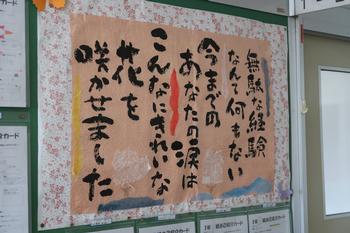 無駄な経験
なんて何もない
今までの
あなたの涙は
こんなにきれいな
花を
咲かせました